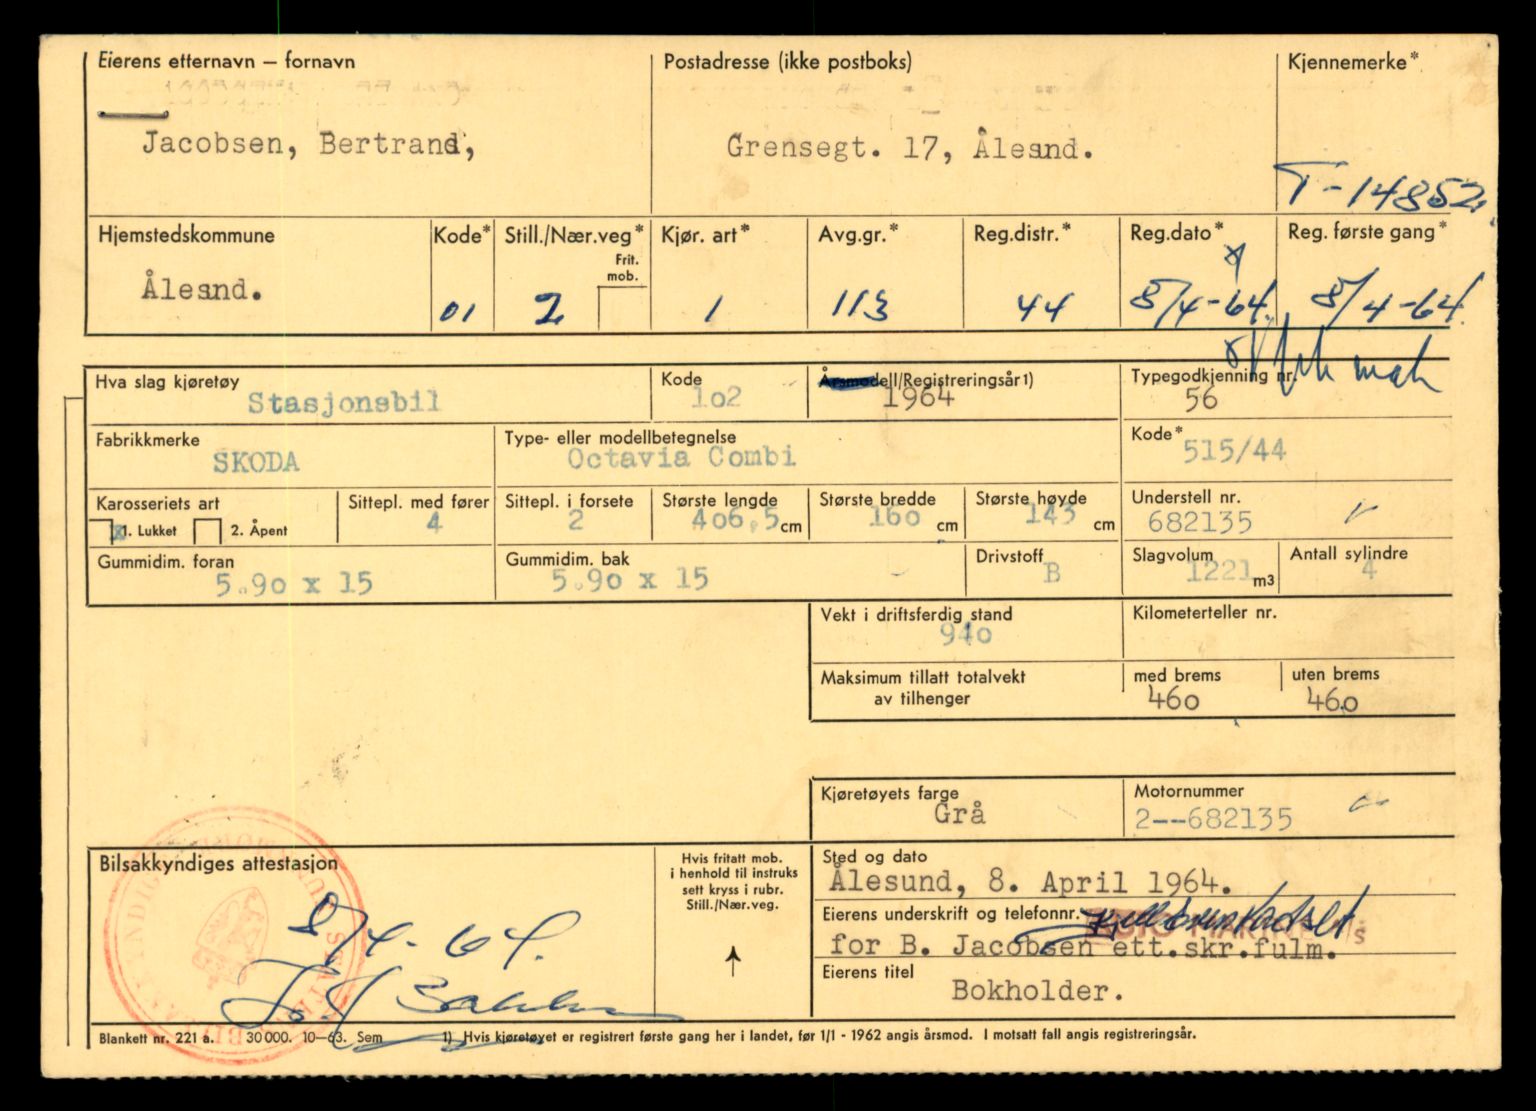 Eierens etternavn – fornavn
Postadresse (ikke postboks)
Kjennemerke*
Jacobsen, Bertrand,
Grensegt. 17, Ålesnd.
T-14852.
Hjemstedskommune
Kode*
Still./Nær.veg*
Frit.
mob.
Kjør. art*
Avg.gr.*
Reg.distr.*
Reg.dato*
Reg. første gang*
Ålesnd.
01
2
1
113
44
8/4-64.
8/4-64.
Hva slag kjøretøy
Stasjonsbil
Kode
1o2
Årsmodell/Registreringsår1)
1964
Typegodkjenning nr.
56
Fabrikkmerke
SKODA
Type- eller modellbetegnelse
Octavia Combi
Kode*
515/44
Karosseriets art
x 1. Lukket 2. Åpent
Sittepl. med fører
4
Sittepl. i forsete
2
Største lengde
4o6,5 cm
Største bredde
16o cm
Største høyde
143 cm
Understell nr.
682135
Gummidim. foran
5.9o x 15
Gummidim. bak
5.9o x 15
Drivstoff
B
Slagvolum
1221 m3
Antall sylindre
4
Vekt i driftsferdig stand
94o
Kilometerteller nr.
Maksimum tillatt totalvekt
av tilhenger
med brems
46o
uten brems
46.o
Kjøretøyets farge
Grå
Motornummer
2--682135
Bilsakkyndiges attestasjon
8/4-64.
Hvis fritatt mob.
i henhold til instruks
sett kryss i rubr.
Still./Nær.veg.
Sted og dato
Ålesund, 8. April 1964.
Eierens underskrift og telefonnr.
for B. Jacobsen ett.skr.fulm.
Eierens titel
Bokholder.
Blankett nr. 221 a. 30 000. 10–63. Sem
1) Hvis kjøretøyet er registrert første gang her i landet, før 1/1 - 1962 angis årsmod. I motsatt fall angis registreringsår.